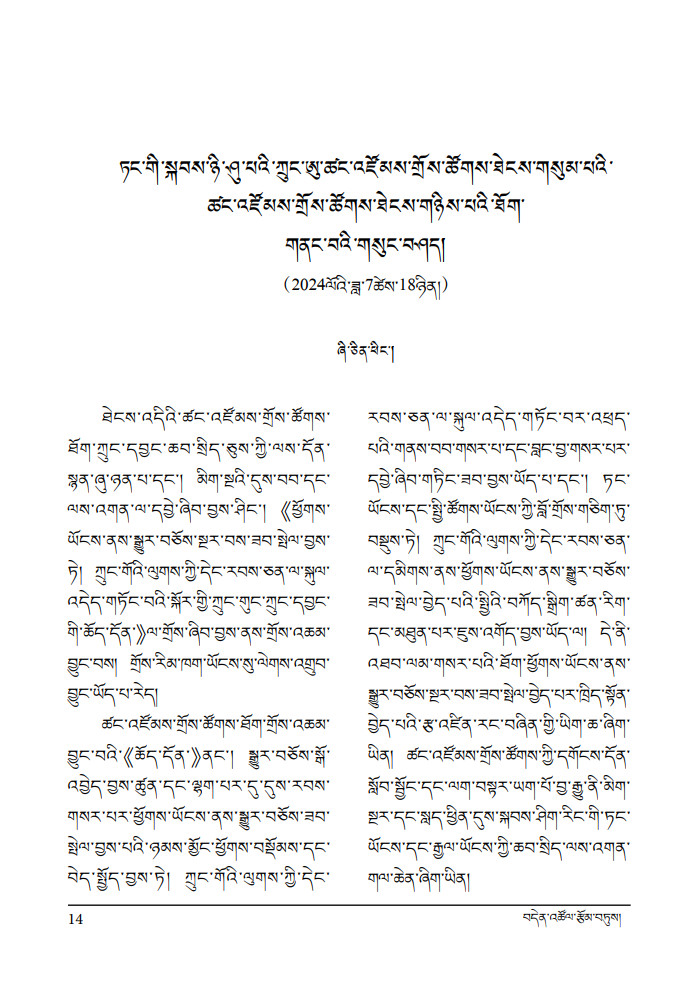 ཏང་གི་སྐབས་ཉི་ཤུ་པའི་ཀྲུང་ཨུ་ཚང་འཛོམས་གྲོས་ཚོགས་ཐེངས་གསུམ་པའི་
ཚང་འཛོམས་གྲོས་ཚོགས་ཐེངས་གཉིས་པའི་ཐོག་
གནང་བའི་གསུང་བཤད།
（2024ལོའི་ཟླ་7ཚེས་18ཉིན།）
ཞི་ཅིན་ཕིང་།
ཐེངས་འདིའི་ཚང་འཛོམས་གྲོས་ཚོགས་
ཐོག་ཀྲུང་དབྱང་ཆབ་སྲིད་ཅུས་ཀྱི་ལས་དོན་
སྙན་ཞུ་ཉན་པ་དང་། མིག་སྔའི་དུས་བབ་དང་
ལས་འགན་ལ་དབྱེ་ཞིབ་བྱས་ཤིང་། 《ཕྱོགས་
ཡོངས་ནས་སྒྱུར་བཅོས་སྔར་བས་ཟབ་སྤེལ་བྱས་
ཏེ། ཀྲུང་གོའི་ལུགས་ཀྱི་དེང་རབས་ཅན་ལ་སྐུལ་
འདེད་གཏོང་བའི་སྐོར་གྱི་ཀྲུང་གུང་ཀྲུང་དབྱང་
གི་ཆོད་དོན་》ལ་གྲོས་ཞིབ་བྱས་ནས་གྲོས་འཆམ་
བྱུང་བས། གྲོས་རིམ་ཁག་ཡོངས་སུ་ལེགས་འགྲུབ་
བྱུང་ཡོད་པ་རེད།
ཚང་འཛོམས་གྲོས་ཚོགས་ཐོག་གྲོས་འཆམ་
བྱུང་བའི་《ཆོད་དོན་》ནང་། སྒྱུར་བཅོས་སྒོ་
འབྱེད་བྱས་ཚུན་དང་ལྷག་པར་དུ་དུས་རབས་
གསར་པར་ཕྱོགས་ཡོངས་ནས་སྒྱུར་བཅོས་ཟབ་
སྤེལ་བྱས་པའི་ཉམས་མྱོང་ཕྱོགས་བསྡོམས་དང་
བེད་སྤྱོད་བྱས་ཏེ། ཀྲུང་གོའི་ལུགས་ཀྱི་དེང་
རབས་ཅན་ལ་སྐུལ་འདེད་གཏོང་བར་འཕྲད་
པའི་གནས་བབ་གསར་པ་དང་བླང་བྱ་གསར་པར་
དབྱེ་ཞིབ་གཏིང་ཟབ་བྱས་ཡོད་པ་དང་། ཏང་
ཡོངས་དང་སྤྱི་ཚོགས་ཡོངས་ཀྱི་བློ་གྲོས་གཅིག་ཏུ་
བསྡུས་ཏེ། ཀྲུང་གོའི་ལུགས་ཀྱི་དེང་རབས་ཅན་
ལ་དམིགས་ནས་ཕྱོགས་ཡོངས་ནས་སྒྱུར་བཅོས་
ཟབ་སྤེལ་བྱེད་པའི་སྤྱིའི་བཀོད་སྒྲིག་ཚན་རིག་
དང་མཐུན་པར་ཇུས་འགོད་བྱས་ཡོད་ལ། དེ་ནི་
འཐབ་ལམ་གསར་པའི་ཐོག་ཕྱོགས་ཡོངས་ནས་
སྒྱུར་བཅོས་སྔར་བས་ཟབ་སྤེལ་བྱེད་པར་ཁྲིད་སྟོན་
བྱེད་པའི་རྩ་འཛིན་རང་བཞིན་གྱི་ཡིག་ཆ་ཞིག་
ཡིན། ཚང་འཛོམས་གྲོས་ཚོགས་ཀྱི་དགོངས་དོན་
སློབ་སྦྱོང་དང་ལག་བསྟར་ཡག་པོ་བྱ་རྒྱུ་ནི་མིག་
སྔར་དང་སླད་ཕྱིན་དུས་སྐབས་ཤིག་རིང་གི་ཏང་
ཡོངས་དང་རྒྱལ་ཡོངས་ཀྱི་ཆབ་སྲིད་ལས་འགན་
གལ་ཆེན་ཞིག་ཡིན།
14
བདེན་འཚོལ་རྩོམ་བཏུས།